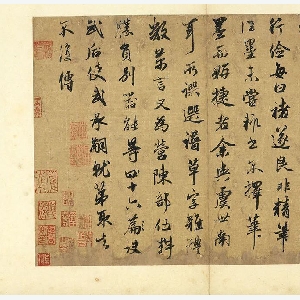 行儉每曰褚遂良非精筆
佳墨未嘗輒書不擇筆
墨而妍捷者余與虞世南
耳所譔選譜草字雜體
數萬言又為營陳部伍料
勝負別器能等四十六篇
武后使武承嗣就第取去
不復傳